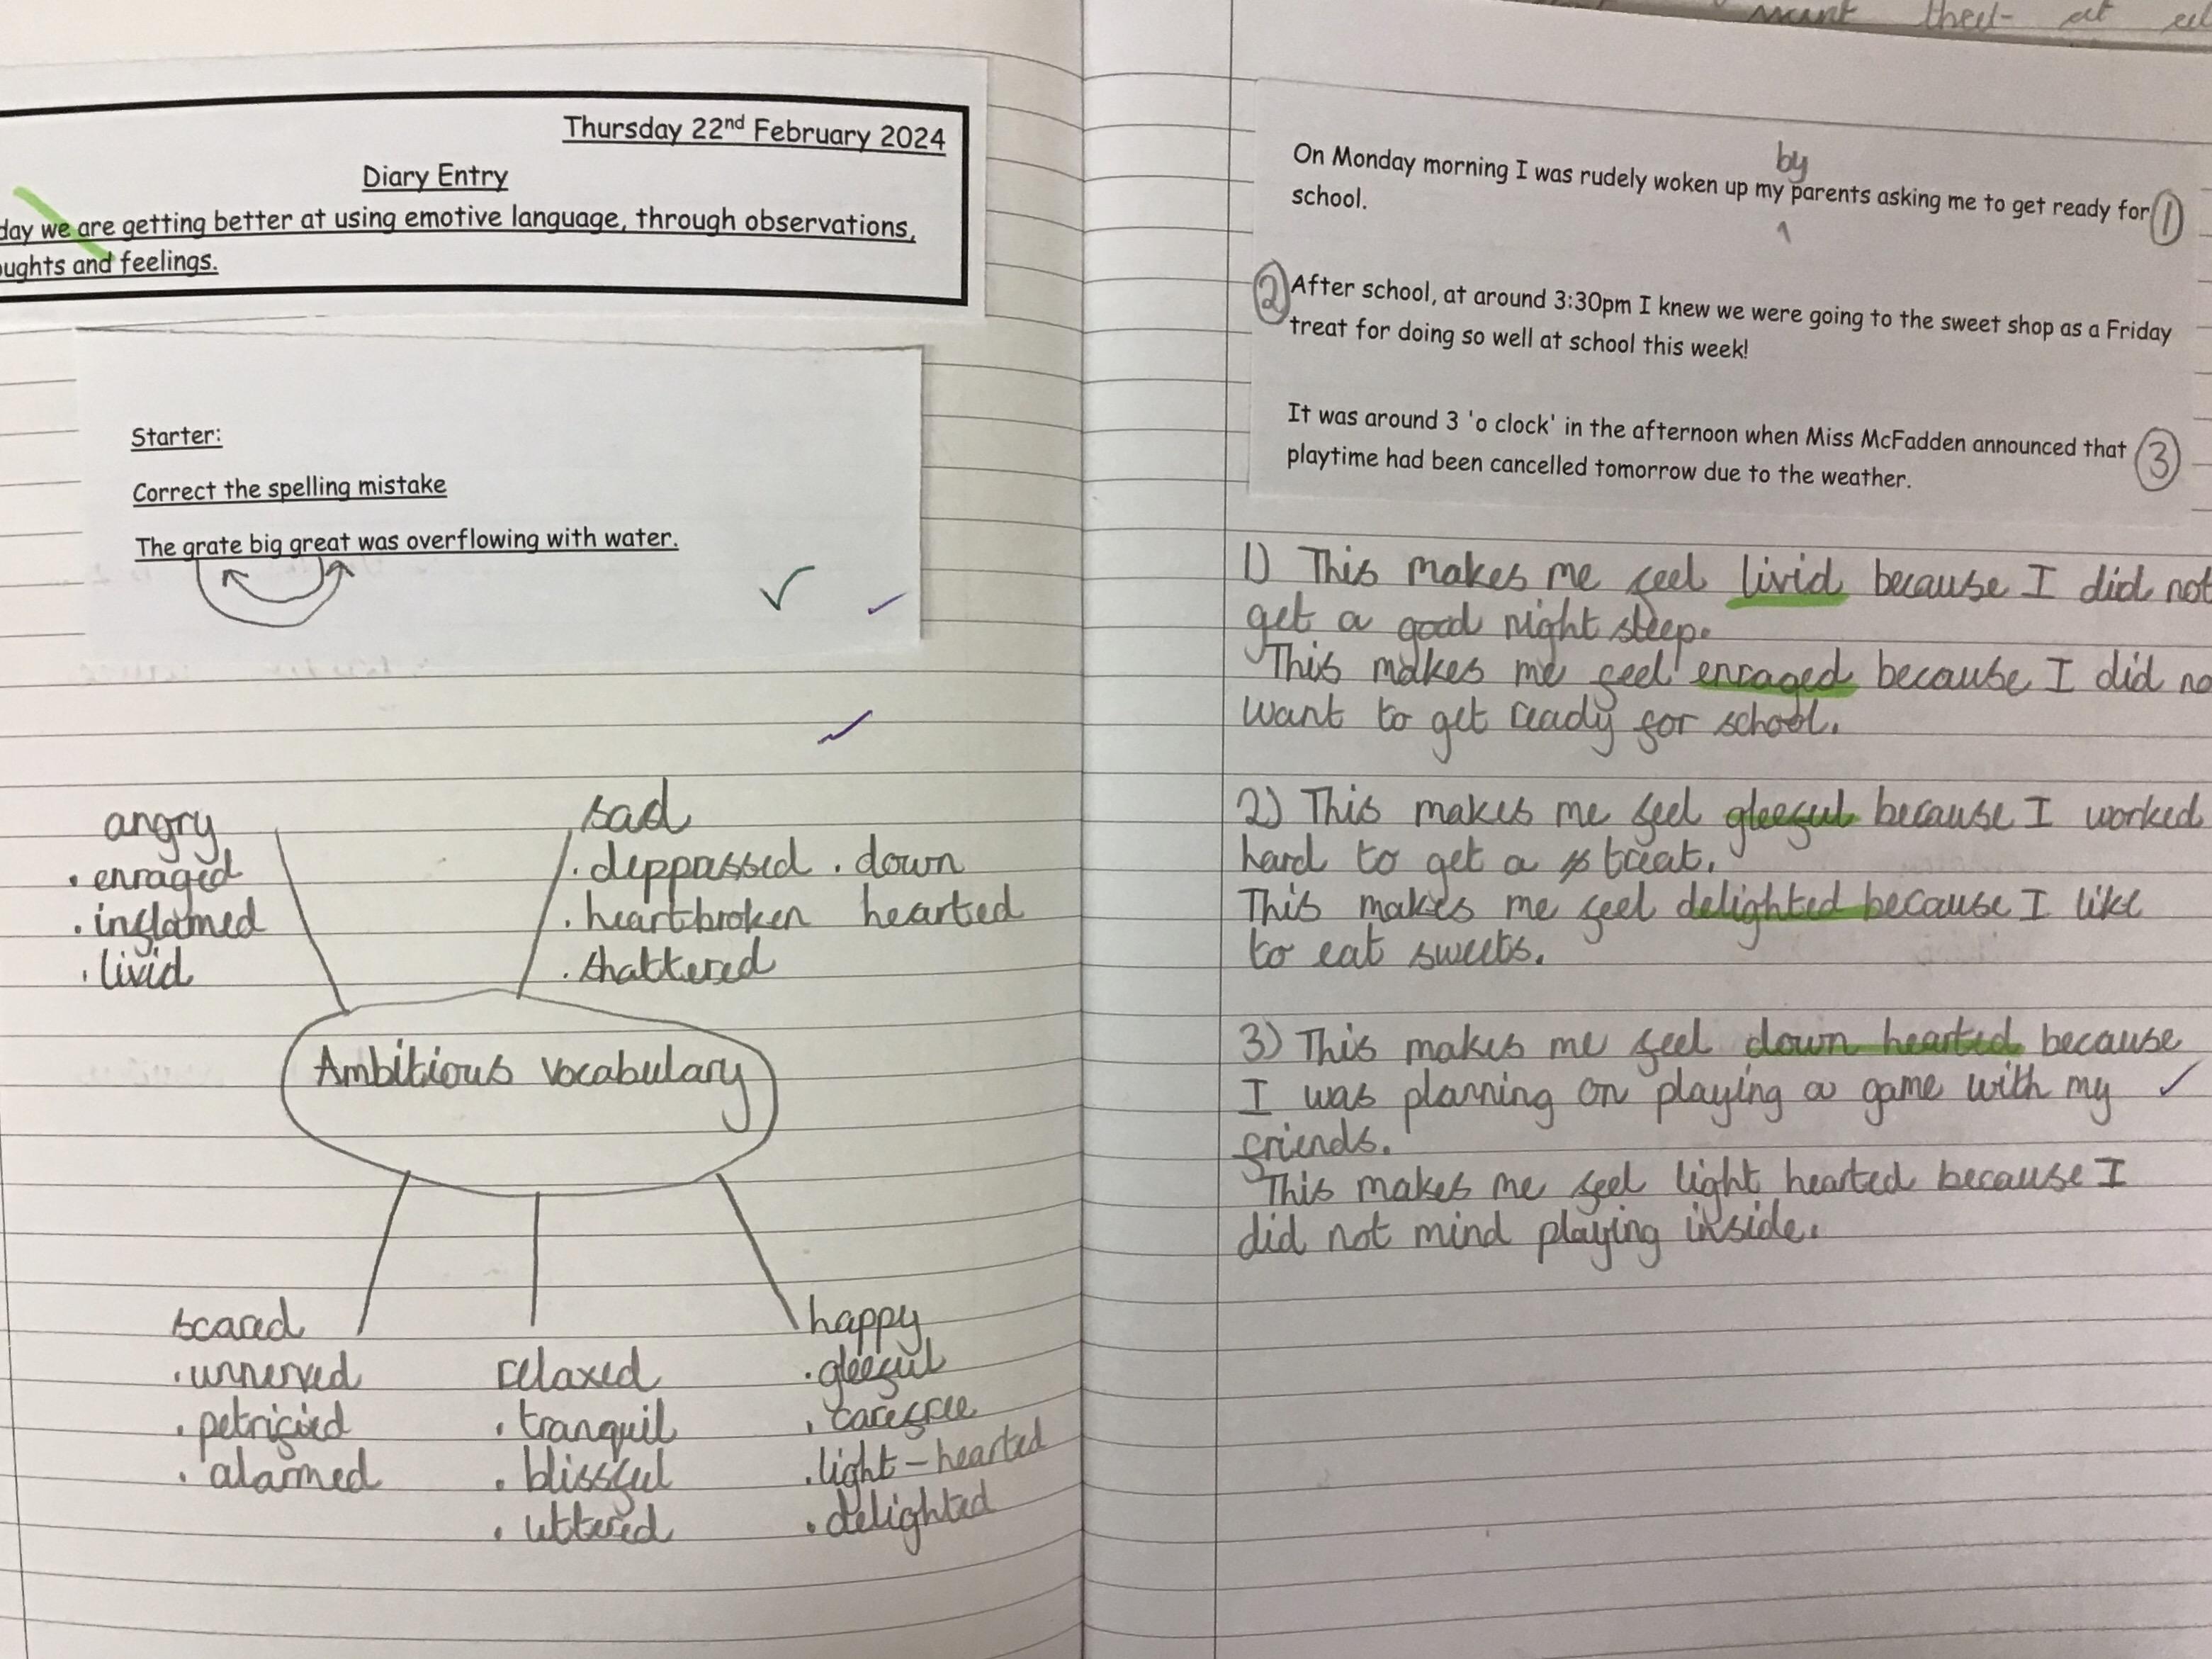 Thursday 22nd February 2024
Diary Entry
day we are getting better at using emotive language, through observations,
oughts and feelings.
Starter:
Correct the spelling mistake
The grate big great was overflowing with water.
angry
. enraged
. inflamed
. livid
sad
. deppassed . down
. heartbroken hearted
. shattered
Ambitious vocabulary
scared
. unnerved
. petrified
. alarmed
relaxed
. tranquil
. blissful
. uttered
happy
. gleeful
. carefree
. light-hearted
. delighted
mant at
by
On Monday morning I was rudely woken up my parents asking me to get ready for 1
school.
2 After school, at around 3:30pm I knew we were going to the sweet shop as a Friday
treat for doing so well at school this week!
It was around 3 'o clock' in the afternoon when Miss McFadden announced that 3
playtime had been cancelled tomorrow due to the weather.
1) This makes me feel livid because I did not
get a good night sleep.
This makes me feel enraged because I did no
want to get ready for school.
2) This makes me feel gleeful because I worked
hard to get a treat.
This makes me feel delighted because I like
to eat sweets.
3) This makes me feel down hearted because
I was planning on playing a game with my
friends.
This makes me feel light hearted because I
did not mind playing inside.